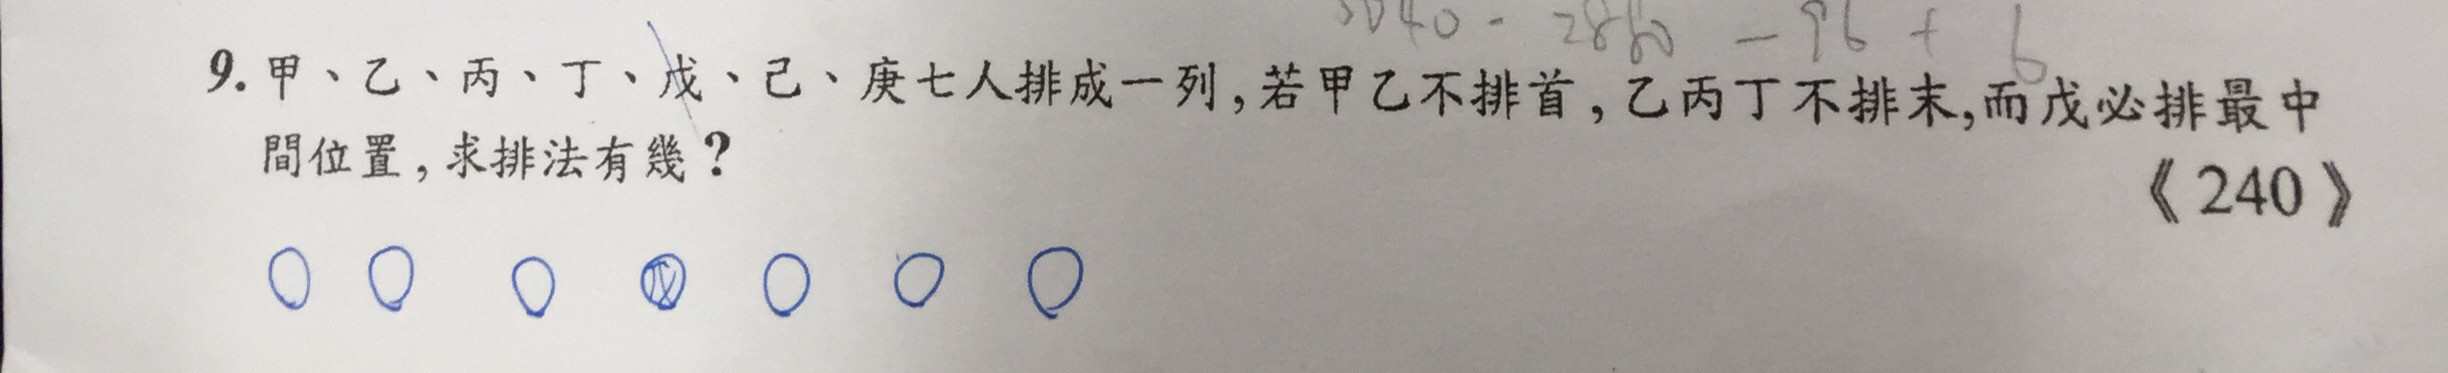 5040 - 2880 - 96 + 6
9. 甲、乙、丙、丁、戊、己、庚七人排成一列,若甲乙不排首,乙丙丁不排末,而戊必排最中
間位置,求排法有幾?
《240》
戊